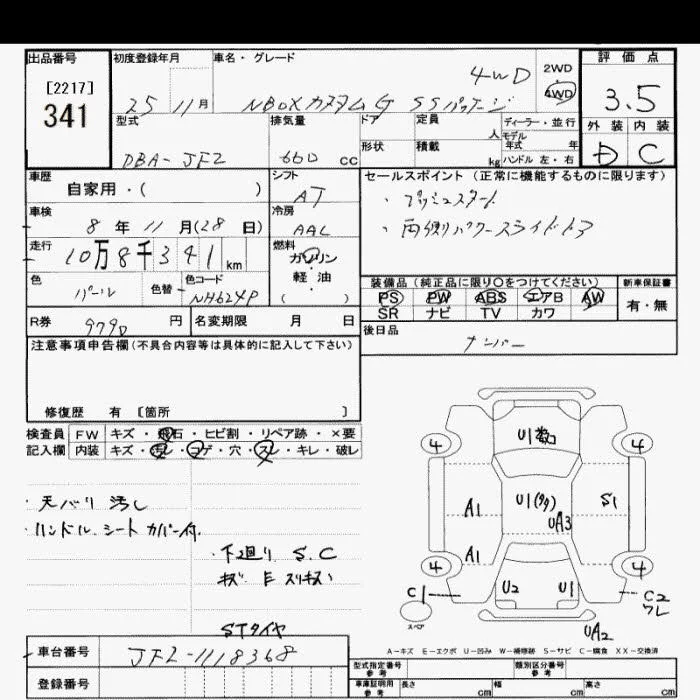 出品番号 初度登録年月 車名・グレード 評価点
[2217] 4WD 2WD
341 25 11月 NBOXカスタムG SSパッケージ 4WD 3.5
型式 排気量 ドア 定員 人 ディーラー・並行 外装 内装
形状 積載 kg モデル年式 年
DBA-JF2 660 cc ハンドル 左・右 D C
車歴 シフト セールスポイント (正常に機能するものに限ります)
自家用・( ) AT ・プッシュスタート
車検 冷房 ・両側パワースライドドア
8年11月(28日) AAC
走行 燃料
10万8千341km ガソリン
色 色替 色コード 軽油 装備品(純正品に限り○をつけてください) 新車保証書
パール NH624P ( ) PS PW ABS エアB AW 有・無
SR ナビ TV カワ
R券 9790円 名変期限 月 日 後日品
ナンバー
注意事項申告欄(不具合内容等は具体的に記入して下さい)
修復歴 有 [箇所 ]
検査員 FW キズ・飛石・ヒビ割・リペア跡・×要
記入欄 内装 キズ・汚レ・コゲ・穴・スレ・キレ・破レ
・天バリ 汚レ
・ハンドル、シート カバー付
・下廻り S.C
キズ
STタイヤ
4 U1 数コ 4
A1 U1(多数) S1
UA3
A1
4 U2 U1 4
C1 C2
ワレ
スペア
UA2
A-キズ E-エクボ U-凹み W-補修跡 S-サビ C-腐食 XX-交換済
車台番号 JF2-1118368
登録番号
型式指定番号 参考 類別区分番号 参考
車庫証明用 参考 長さ cm 幅 cm 高さ cm